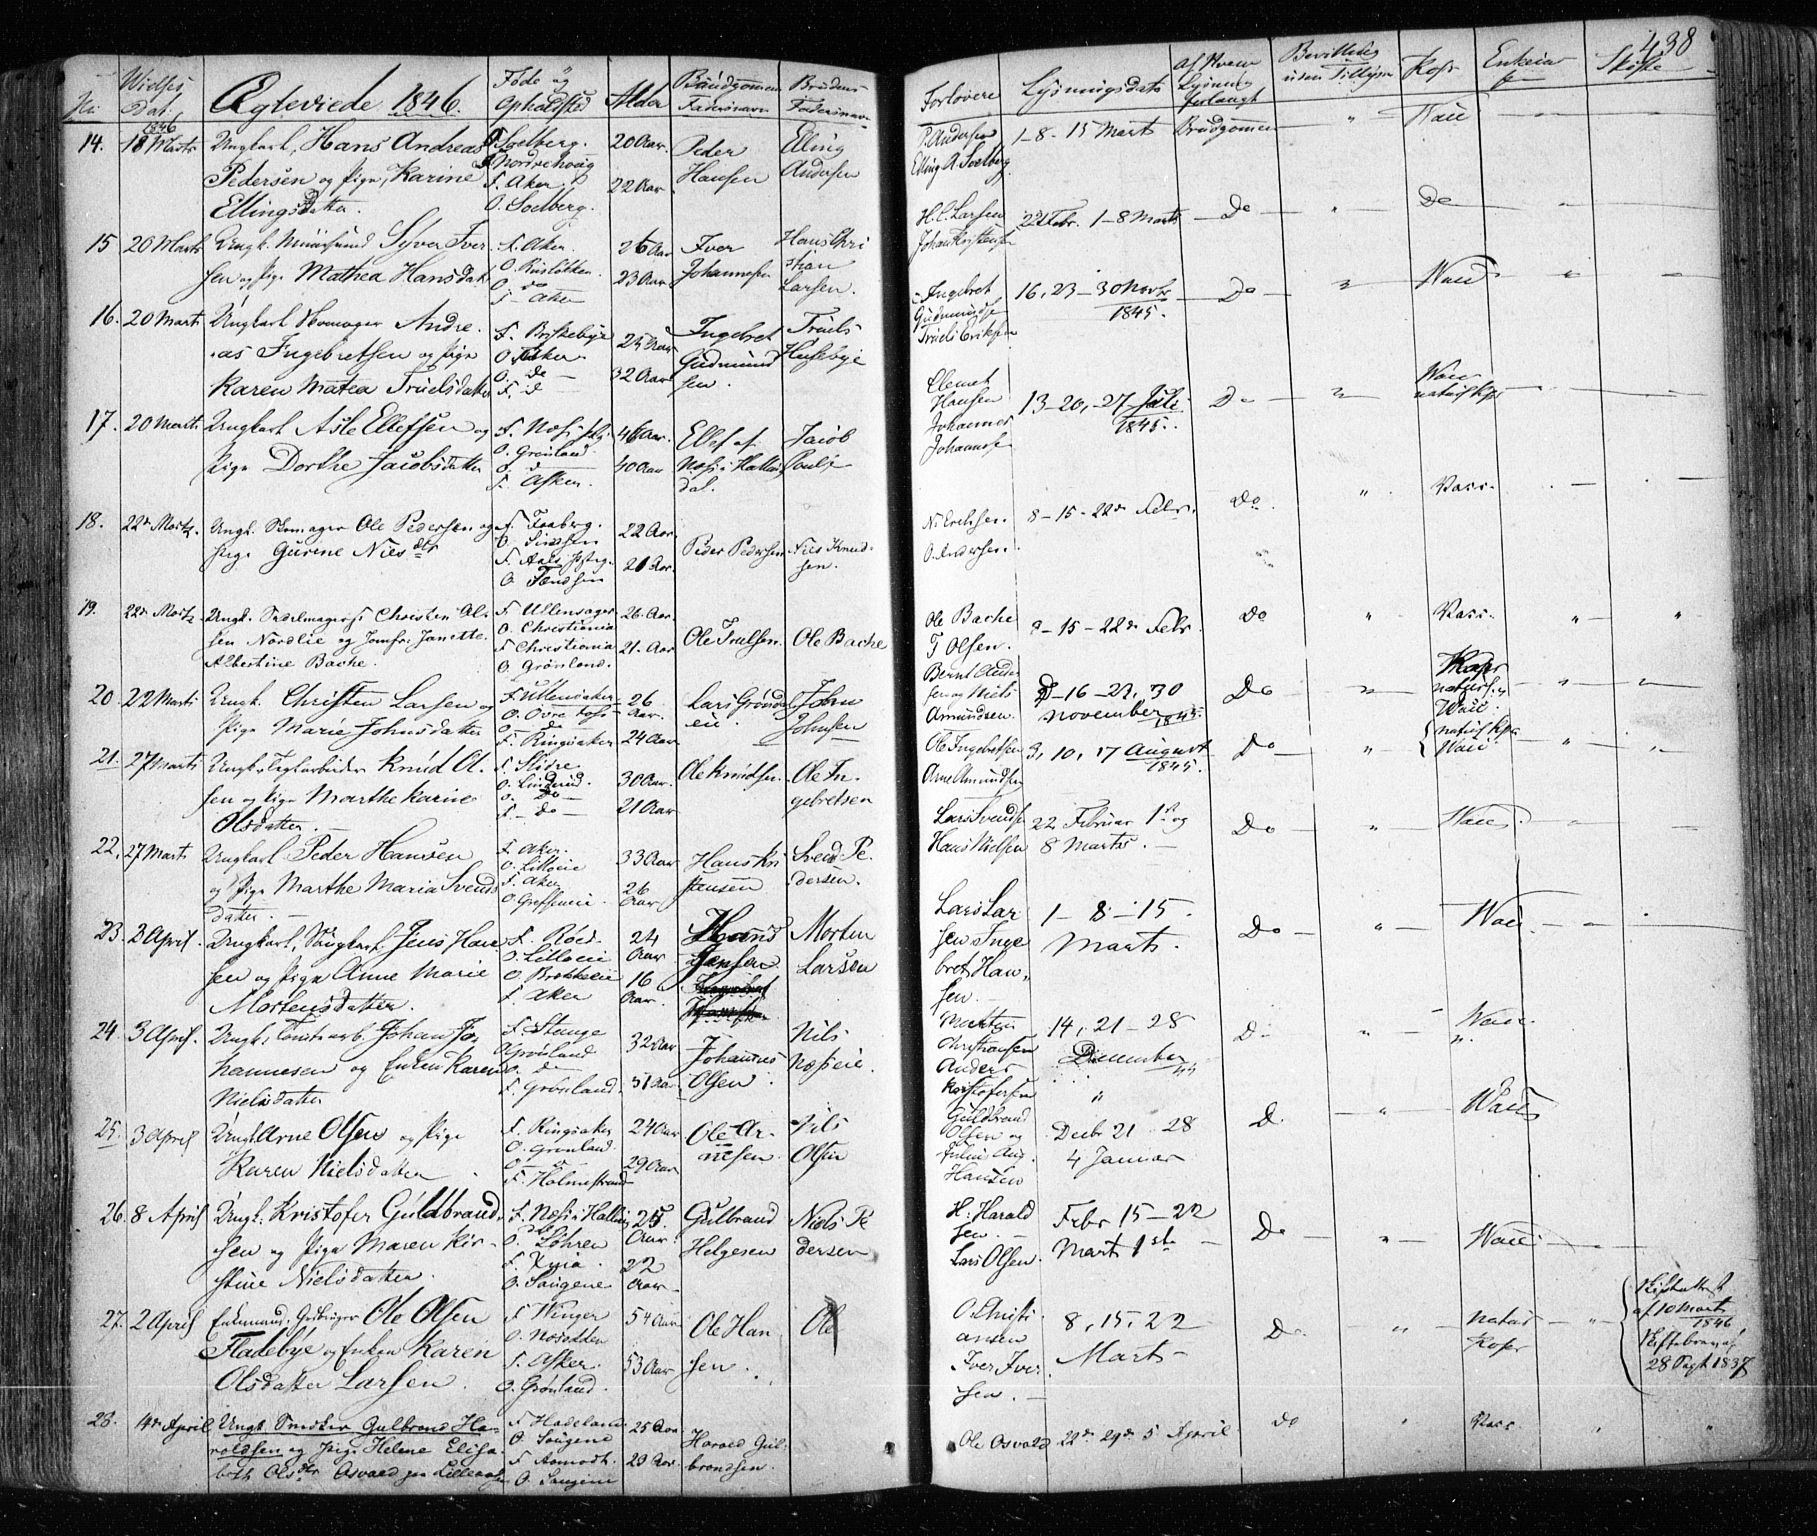 438
No
Vielses Dat.
Ægteviede 1846.
Føde og Opholdsted
Alder
Brudgommens Fadersnavn
Brudens Fadersnavn
Forlovere
Lysningsdato
af Hvem Lysning forlangt
Bevilling uden Tillysn
Kopr
Enkeia
Skifte
1846
14. 18 Marts Ungkarl, Hans Andreas
Pedersen og Pige, Karine
Ellingsdatter.
F. Soelberg.
Nordrehoug
F. Aker
O. Soelberg.
20 Aar.
22 Aar.
Peder
Hansen
Elling
Andersen
P. Andersen
Elling A. Soelberg
1-8-15 Marts
Brudgommen
"
Vacc
15 20 Marts Ungk. Sÿver Iver
sen og Pige Mathea Hansdat
F. Aker.
O.
O. do
F. Aker
26 Aar
23 Aar
Iver
Johannesen
Hans Chri
stian
Larsen.
H. C. Larsen
Johan Kristensen
22 Febr. 1-8 Marts
Do
"
Do
16. 20 Marts Ungkarl Andre
as Ingebretsen og Pige
Karen Matea Truelsdatter
F.
O. Aker.
O. do
F. d
25 Aar
32 Aar
Ingebret
Gudmund
sen.
Truels
Husebye
Ingebret
Gudmundse
Truels Eriksen
16, 23-30 Novbr
1845.
Do
"
Vacc
17. 20 Marts Ungkarl Asle Ellefsen og
Pige Dorthe Jacobsdatter
F. Næss
O. Grønland
O. d
F. Asker.
46 Aar.
40 Aar
Ellef af
Næss i Halling
dal.
Jacob
Pouls
Clemet
Hansen
Johannes
Johannese
13-20,-27 Juli
1845.
Do
"
Vacc
naturl Kopr
18. 22de Marts. Ungk. Skomager Ole Pedersen og
Pige Gurine Niels dtr
F. Faaberg.
O.
F. Aals
O.
22 Aar
21 Aar.
Peder Pedersen
Niels Knud-
sen.
N. Erichsen.
O. Andersen.
8-15-22de Febr.
do
"
Vacc.
19. 22de Marts. Ungk. Christen Ol-
sen Nordlie og Jomfr: Janette
Albertine Bache.
F. Ullensager
O. Christiania
F. Christiania
O. Grønland.
26. Aar.
21. Aar
Ole Truelsen
Ole Bache
Ole Bache
T Olsen.
8-15-22de Febr.
do
"
Vacc.
20. 22 Marts Ungk. Christen Larsen og
Pige Marie Johnsdatter
F. Ullensaker
O. Øvre Foss
O. do
F. Ringsaker
26
Aar.
24 Aar
Lars Grønd
eie
John
Johnsen
Bernt Ander
sen og Niels
Amundsen.
9-16-23, 30
November
1845.
Do
"
Kopr
naturl. og
Vacc.
21. 27 Marts Ungk, Teglarbeider Knud Ol
sen og Pige Marthe Karine
Olsdatter.
F. Slidre
O. Linderud.
O. Do
F. do
30 Aar.
21 Aar
Ole Knudsen.
Ole In
gebretsen
Ole Ingebretsen
Arne Amundsen
3, 10, 17 August
1845.
Do
"
naturl Kopr
Vacc
22, 27 Marts Ungkarl Peder Hansen
og Pige Marthe Maria Svends
datter.
F. Aker.
O. Lilloeie
F. Aker
O. Grefseneie.
33 Aar
26
Aar.
Hans Kri
stensen
Svend Pe-
dersen.
Lars Svendse
Hans Nielsen
22 Februar 1ste og
8 Marts.
Do
"
Vacc.
23. 3 April. Ungkarl, Jens Han
sen og Pige Anne Marie
Mortensdatter.
F. Røed.
O. Lilloeie
O. Brekkeeie
F. Aker
24
Aar.
16
Aar.
Hans
Jensen
Morten
Larsen
Lars Lar
sen Inge
bret Han-
sen.
1-8-15.
Marts.
Do
"
Vacc.
24. 3 April. Ungk. Johan Jo-
hannesen og Enken Karen
Nielsdatter
F. Stange
O Grønland.
O. do
F. Grønland.
32 Aar
51 Aar
Johannes
Olsen
Nils
Næseie.
Morten
Christiansen
Anders
Kristofersen
14, 21-28
December
Do
"
Vacc.
25. 3 April Ungk Arne Olsen og Pige
Karen Nielsdatter
F. Ringsaker
O. Grønland.
O. do
F. Holmestrand
24 Aar
29 Aar
Ole Ar-
nesen.
Nils
Olsen
Guldbrand
Olsen og
Julius Aug.
Hansen
Decbr 21-28
4 Januar
D.
"
Vacc
26. 8 April Ungk. Kristofer Guldbrand
sen og Pige Maren Kir-
stine Nielsdatter.
F. Næss i Halling
dal
O. Sohren
F.
O. Saugene
25
Aar.
22
Aar.
Gulbrand
Helgesen
Niels Pe
dersen
H. Harald
sen.
Lars Olsen.
Febr 15-22
Marts 1ste
Do
"
Vacc.
27. 2 April Enkemand, Ole Olsen
Fladebye og Enken Karen
Olsdatter Larsen.
F. Winger
O.
F. Asker.
O. Grønland.
54 Aar
53 Aar.
Ole Han
sen.
Ole
O. Christi
ansen
Iver Iver
sen.
8, 15, 22
Marts
Do
"
natur
Kopr
Skifteattest
af 10 Marts
1846
28 Sept 1837
28. 4de April Ungk. Smeder Gulbrand Ha-
roldsen og Pige Helene Elisa
beth Ols dtr Osvald
F. Hadeland
O. Saugene
F. Aamodt.
O. Saugene
25 Aar
20 Aar.
Harald Gul-
brandsen.
Ole Osvald
22de 29de 5 April
do
"
Vacc